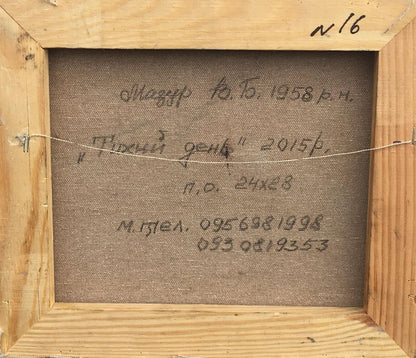 N 16
Мазур В.Б. 1958 р.н.
„Тихий день" 2015р.
п.о. 24х28
м.тел. 0956981998
0930819353